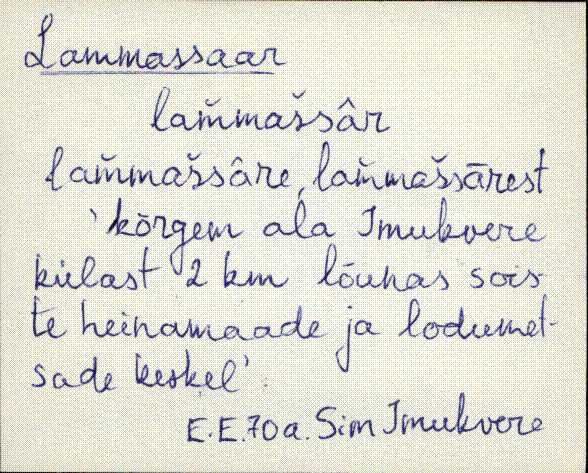 Lammassaar
lam̆mas̆sâr
lam̆mas̆sâre, lam̆mas̆sārest
'kõrgem ala Imukvere
külast 2 km lõunas sois-
te heinamaade ja lodumet-
sade keskel'.
E.E. 70 a. Sim Imukvere